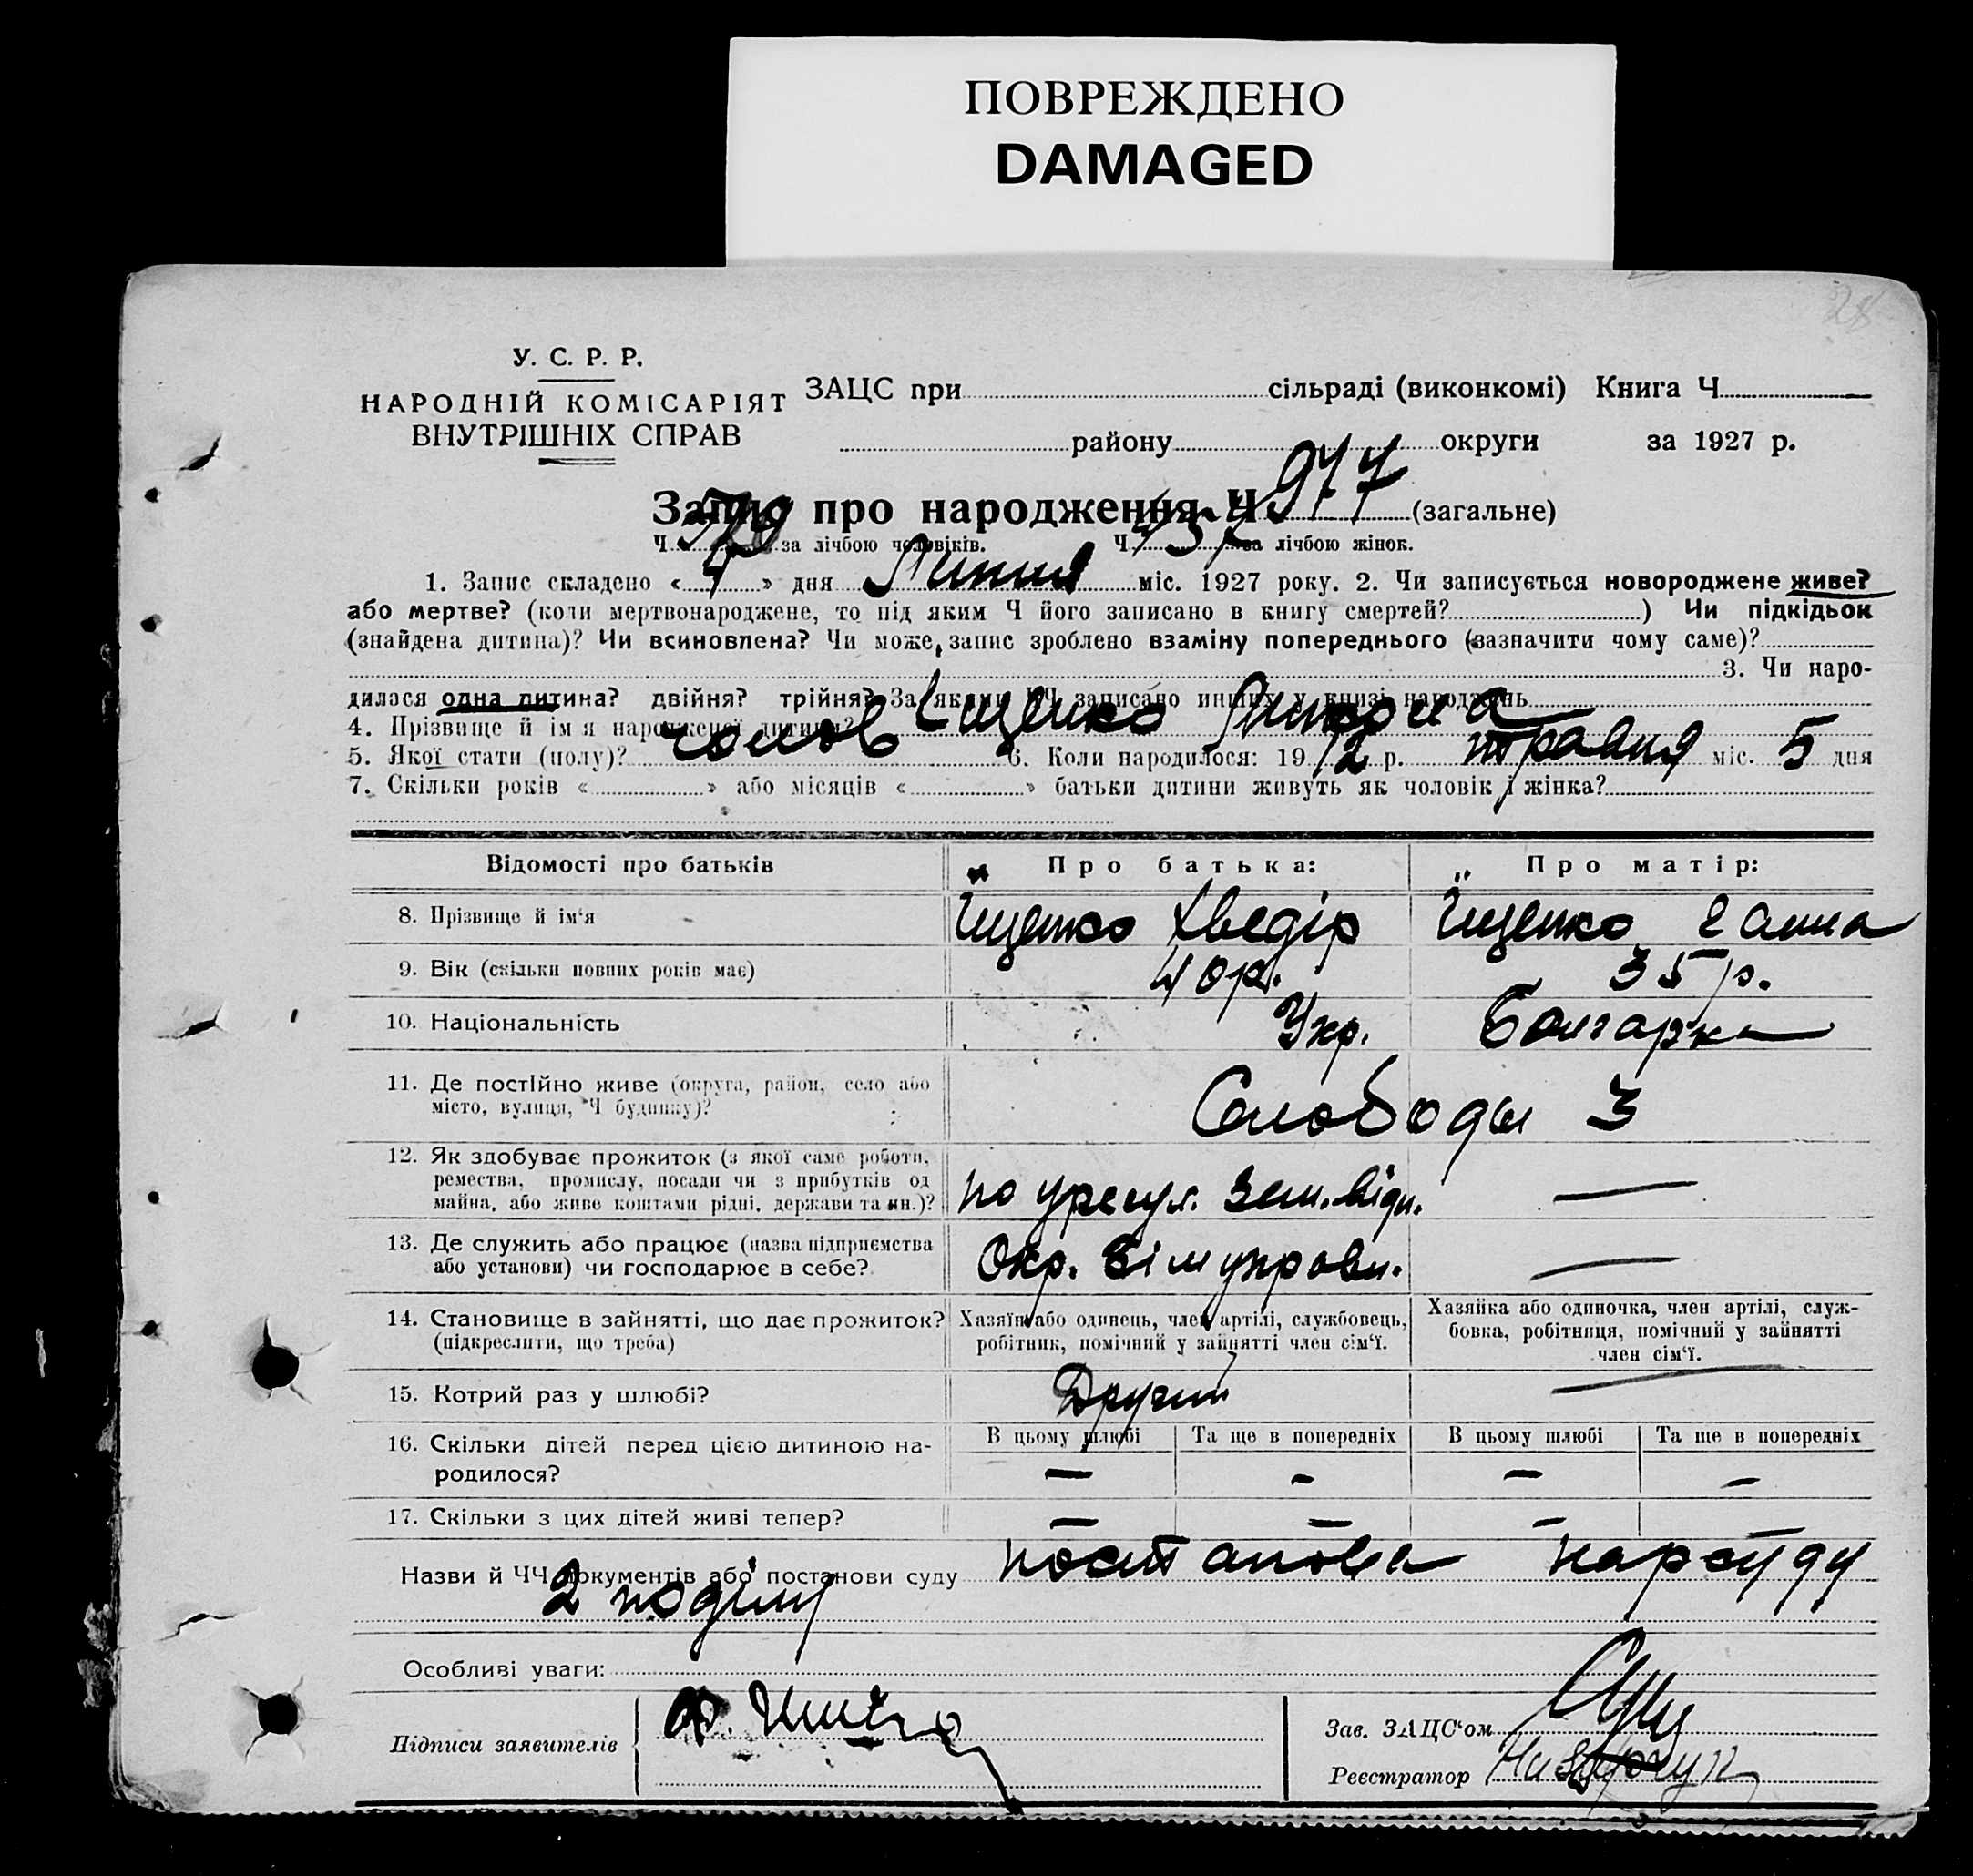 ПОВРЕЖДЕНО
DAMAGED
28
У. С. Р. Р.
НАРОДНІЙ КОМІСАРІЯТ
ВНУТРІШНІХ СПРАВ
ЗАЦС при сільраді (виконкомі) Книга Ч
району округи за 1927 р.
Запис про народження Ч 977 (загальне)
Ч за лічбою чоловіків. Ч за лічбою жінок.
1. Запис складено « 4 » дня Липня міс. 1927 року. 2. Чи записується новороджене живе?
або мертве? (коли мертвонароджене, то під яким Ч його записано в книгу смертей? ) Чи підкідьок
(знайдена дитина)? Чи всиновлена? Чи може, запис зроблено взаміну попереднього (зазначити чому саме)?
3. Чи наро-
дилася одна дитина? двійня? трійня? За якими ЧЧ записано инших у книзі народжень
4. Прізвище й ім'я народженої дитини? Іщенко
5. Якої стати (полу)? чолов 6. Коли народилося: 19 12 р. травня міс. 5 дня
7. Скільки років « » або місяців « » батьки дитини живуть як чоловік і жінка?
Відомості про батьків Про батька: Про матір:
8. Прізвище й ім'я Їщенко Хведір Їщенко Ганна
9. Вік (скільки повних років має) 40 р. 35 р.
10. Національність Укр. Болгарка
11. Де постійно живе (округа, район, село або
місто, вулиця, Ч будинку)? Слободы 3
12. Як здобуває прожиток (з якої саме роботи,
ремества, промислу, посади чи з прибутків од
майна, або живе коштами рідні, держави та ин.)? по урегул. Зем. відн. —
13. Де служить або працює (назва підприємства
або установи) чи господарює в себе? Окр. Зем управл. —
14. Становище в зайнятті, що дає прожиток?
(підкреслити, що треба)
Хазяїн або одинець, член артілі, службовець,
робітник, помічний у зайнятті член сім'ї.
Хазяйка або одиночка, член артілі, служ-
бовка, робітниця, помічний у зайнятті
член сім'ї.
15. Котрий раз у шлюбі? Другий —
16. Скільки дітей перед цією дитиною на-
родилося?
В цьому шлюбі Та ще в попередніх В цьому шлюбі Та ще в попередніх
— — — —
17. Скільки з цих дітей живі тепер? — — — —
Назви й ЧЧ документів або постанови суду постанова нарсуду
2 поділу
Особливі уваги:
Підписи заявителів
Зав. ЗАЦС'ом
Реєстратор